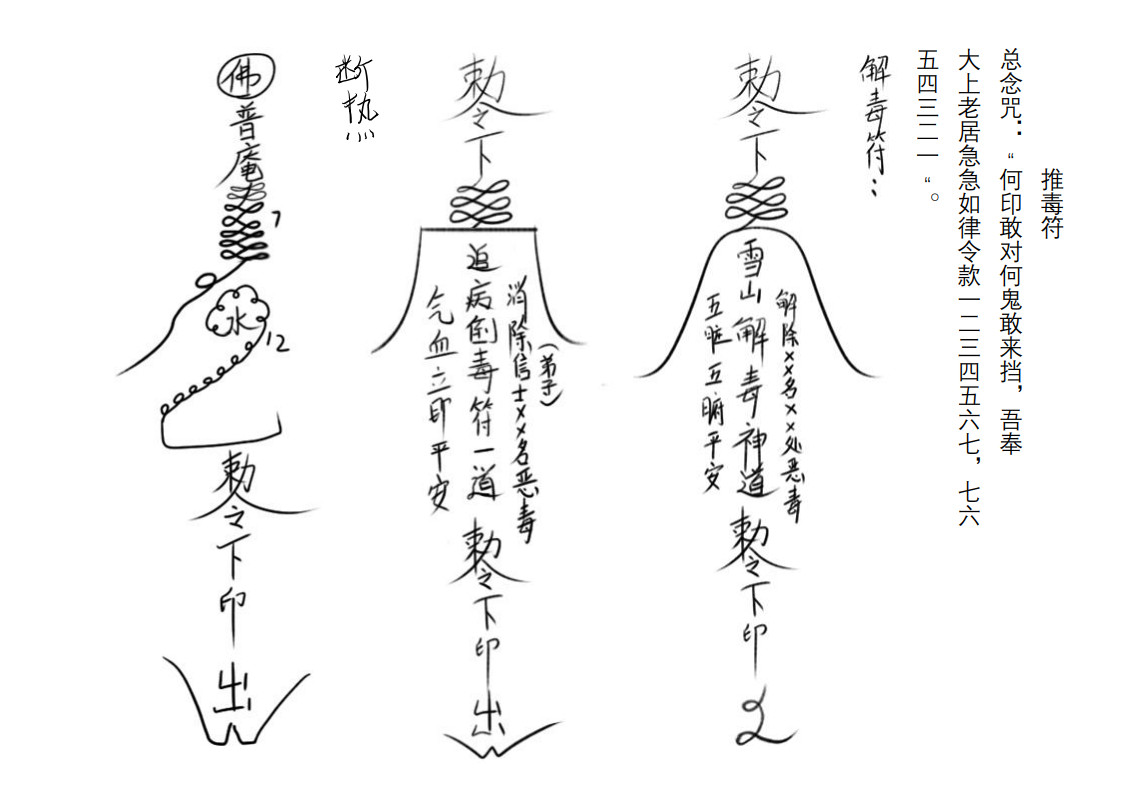 推毒符
总念咒：“何印敢对何鬼敢来挡，吾奉
大上老居急急如律令款一二三四五六七，七六
五四三二一“。
解毒符：
敕令下
雪山解毒神道
解除××名××处恶毒
五脏五腑平安
敕令下印
敕令下
追病倒毒符一道
消除信士××名恶毒
（弟子）
气血立即平安
敕令下印出
断热
佛
普庵
7
水
12
敕令下印出